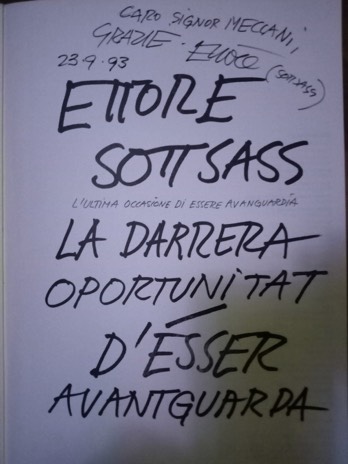 CARO SIGNOR MECCANII
GRAZIE. Ettore
(SOTTSASS)
23.9.93
ETTORE
SOTTSASS
L'ULTIMA OCCASIONE DI ESSERE AVANGUARDIA
LA DARRERA
OPORTUNITAT
D'ÉSSER
AVANTGUARDA